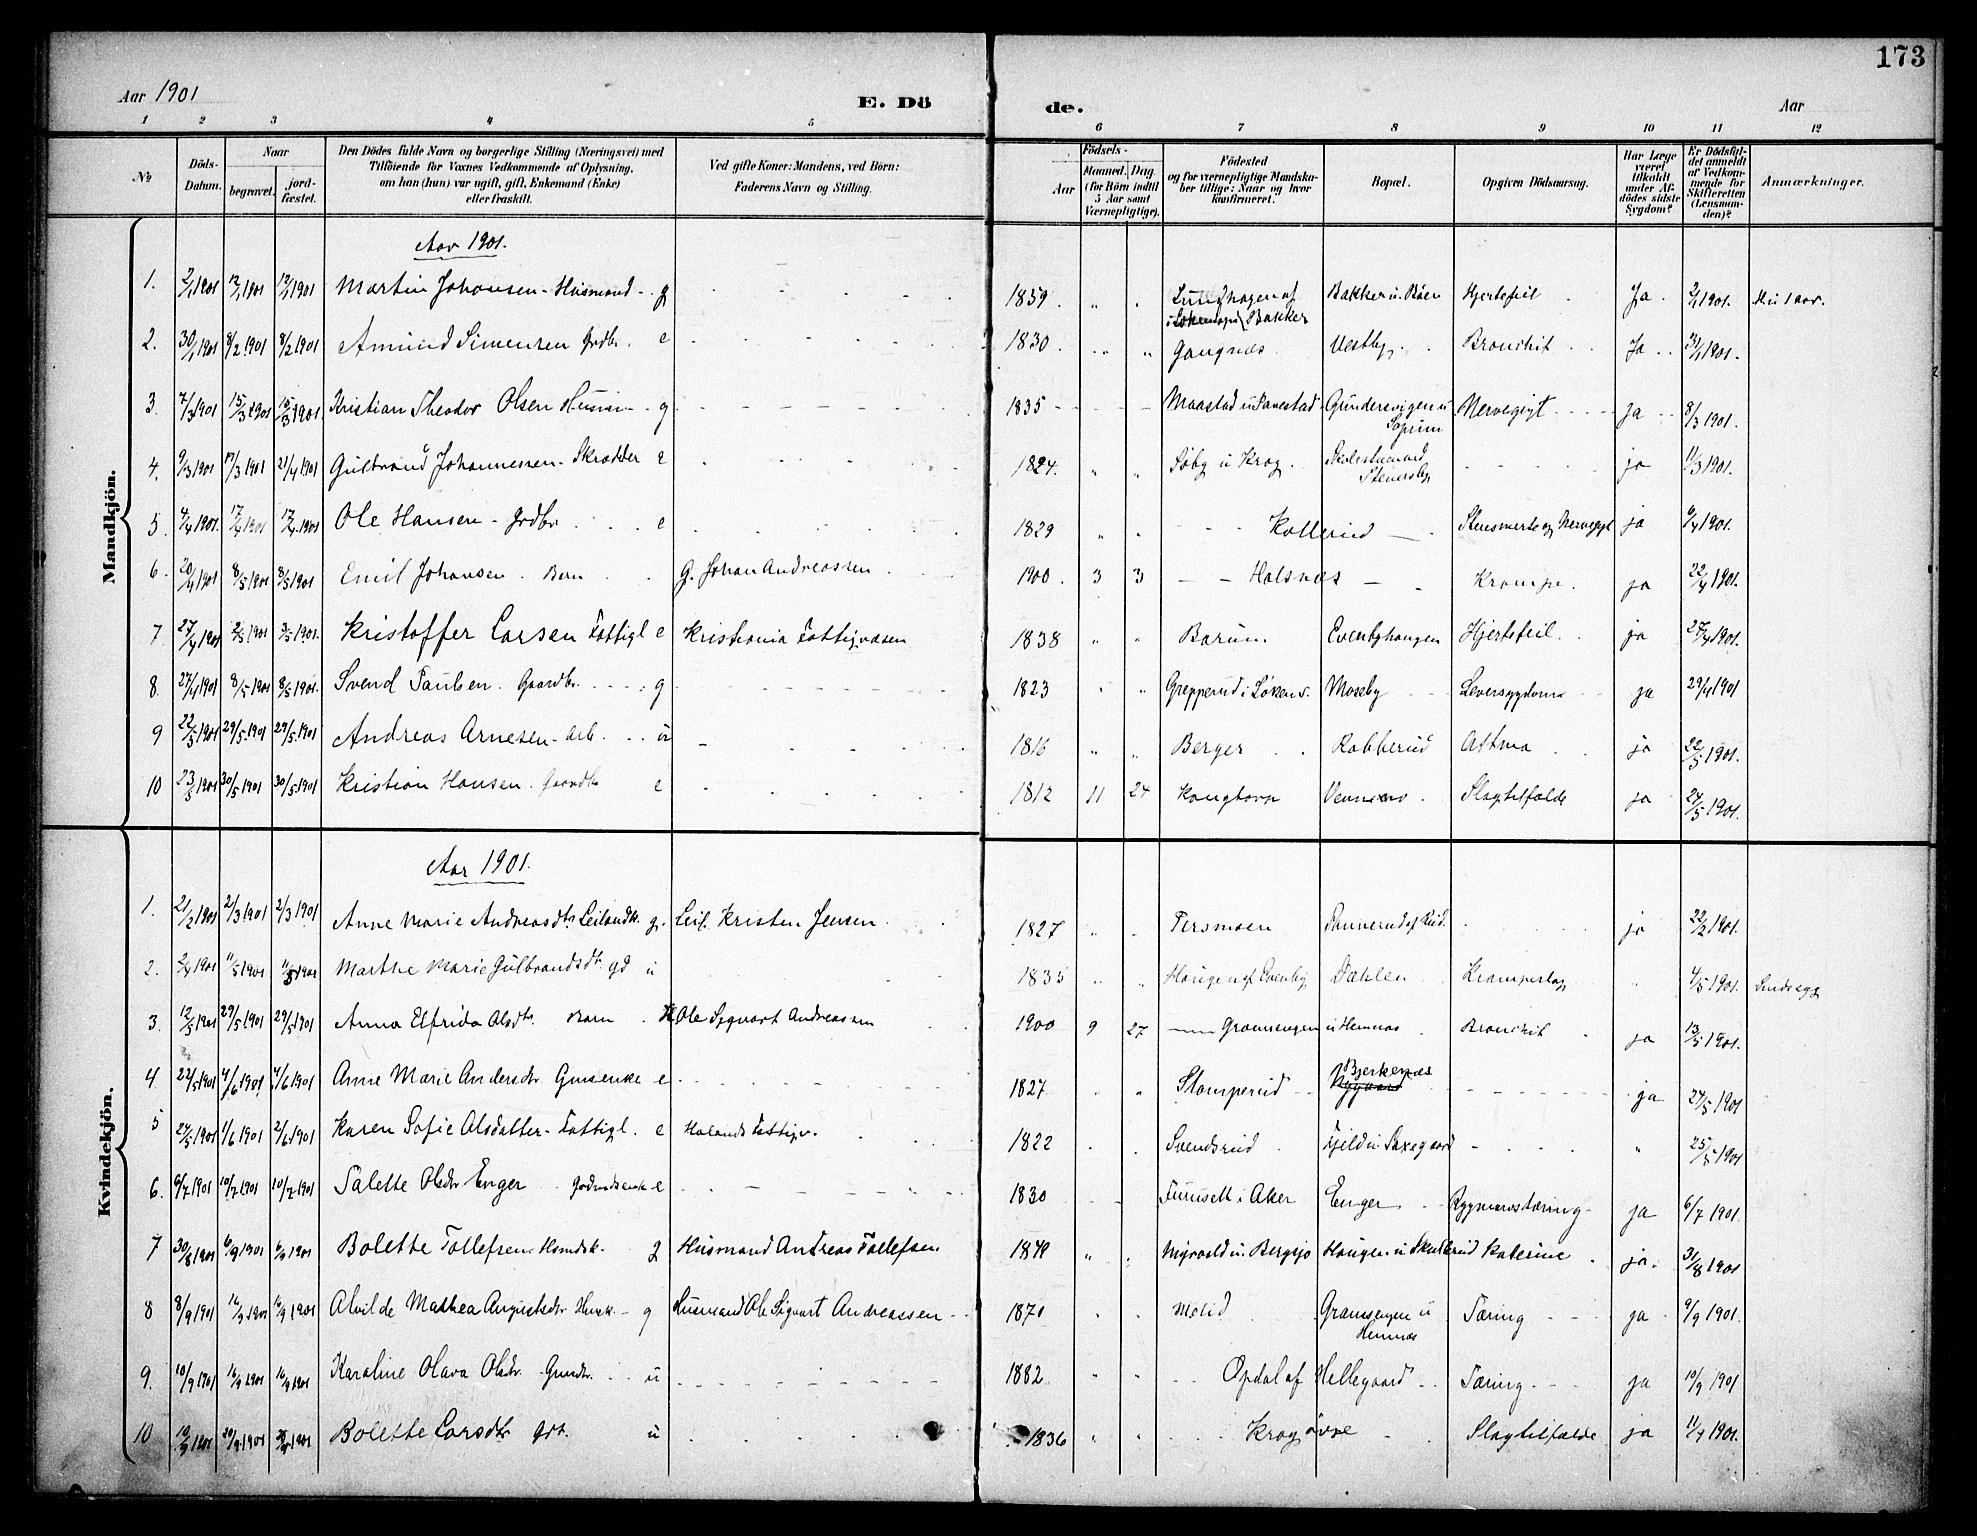 173
Aar 1901
E. Dö
de.
Aar
1 2 3 4 5 6 7 8 9 10 11 12
№
Döds-Datum.
Naar
begravet.
jord-fæstet.
Den Dödes fulde Navn og borgerlige Stilling (Næringsvei) med
Tilföiende for Voxnes Vedkommende af Oplysning,
om han (hun) var ugift, gift, Enkemand (Enke)
eller fraskilt.
Ved gifte Koner: Mandens, ved Börn:
Faderens Navn og Stilling.
Födsels-
Aar
Maaned. Dag.
(for Börn indtil
5 Aar samt
Værnepligtige).
Födested
og for værnepligtige Mandska-
ber tillige: Naar og hvor
konfirmeret.
Bopæl.
Opgiven Dödsaarsag.
Har Læge
været
tilkaldt
under Af-
dödes sidste
Sygdom?
Er Dödsfal-
det anmeldt
af Vedkom-
mende for
Skifteretten
(Lensman-
den)?
Anmærkninger.
Mandkjön.
Aar 1901.
1. 2/1 1901 12/1 1901 12/1 1901 Martin Johansen - Husmand - g 1859 Bakker u. Bøen Hjertefeil Ja 2/1 1901.
Bakker
2. 30/1 1901 8/2 1901 8/2 1901 Amund Simensen Grdbr. e 1830 Gangnæs Vestby Bronchit Ja 31/1 1901.
3. 7/3 1901 15/3 1901 15/3 1901 Kristian Theodor Olsen Husm - g 1835 Maastad u Gundersvigen u Nervegigt ja 8/3 1901.
4. 9/3 1901 17/3 1901 21/4 1901 Gulbrand Johannessen - Skrædder e 1824 Søby u Krog ja 11/3 1901.
Stenersby
5. 4/4 1901 17/4 1901 17/4 1901 Ole Hansen - Grdbr e 1829 Kollerud ja 6/4 1901.
6. 20/4 1901 8/5 1901 8/5 1901 Emil Johansen. Barn G. Johan Andreassen 1900 3 3 Holsnæs Krampe. ja 22/4 1901.
7 27/4 1901 3/5 1901 3/5 1901. Kristoffer Larsen Fattigl e Kristiania Fattigvæsen 1838 Bærum. Evenbyhaugen Hjertefeil. ja 27/4 1901.
8. 27/4 1901 8/5 1901 8/5 1901. Svend Paulsen. Gaardbr. g 1823 Grepperud i Løkenv. Moseby Leversygdom ja 29/4 1901
9 22/5 1901 29/5 1901 29/5 1901 Andreas Arnesen - Arb. u 1816 Berger Kabberud Astma ja 22/5 1901.
10 23/5 1901 30/5 1901 30/5 1901 Kristian Hansen. Gaardbr e 1812 11 24 Kongtorp Slagtilfælde ja 24/5 1901.
Kvindekjön.
Aar 1901.
1. 21/2 1901 2/3 1901 2/3 1901 Anne Marie Andreasdtr Leilendk. g. Leil. Kristen Jensen 1827 Tersmoen ja 22/2 1901.
2. 2/4 1901 11/5 1901 11/5 1901 Marthe Marie Gulbrandsdtr gd u 1835 Haugen af Evenby Dæhlen Krampeslag 4/5 1901. Sindssyg
3. 12/5 1901 29/5 1901 29/5 1901 Anna Elfrida Olsdtr. Barn Ole Sigvart Andreassen 1900 9 27 Gransengen u Hemnæs Bronchit ja 13/5 1901.
4. 22/5 1901 4/6 1901 4/6 1901 Anne Marie Andersdtr e 1827 Slomperud Bjerkenæs ja 24/5 1901
5 24/5 1901 1/6 1901 2/6 1901 Karen Sofie Olsdatter - Fattigl. e Hølands Fattigv. 1822 Svendsrud Fjeld u. Saxegaard 25/5 1901
6. 6/7 1901 10/7 1901 10/7 1901 Salette Olsdtr Enger e 1830 Furuseth i Aker Enger Rygmarvstæring ja 6/7 1901.
7 30/8 1901 6/9 1901 6/9 1901 Bolette Tollefsen Husmdsk. g Husmand Andreas Tollefsen Myrvold u. Bergsjø Haugen u Skullerud ja. 31/8 1901
8 8/9 1901 16/9 1901 16/9 1901 Alvilde Mathea Augustsdtr Husk - g Husmand Ole Sigvart Andreassen 1870 Melid Gransengen u Tæring ja 9/9 1901.
Hemnæs
9. 10/9 1901 16/9 1901 16/9 1901 Karoline Olava Olsdtr. u 1882 Opdal af Hellegaard Tæring ja 10/9 1901
10 10/9 1901 20/9 1901 Bolette Larsdtr u 1836 Krog øvre Slagtilfælde ja 1901.